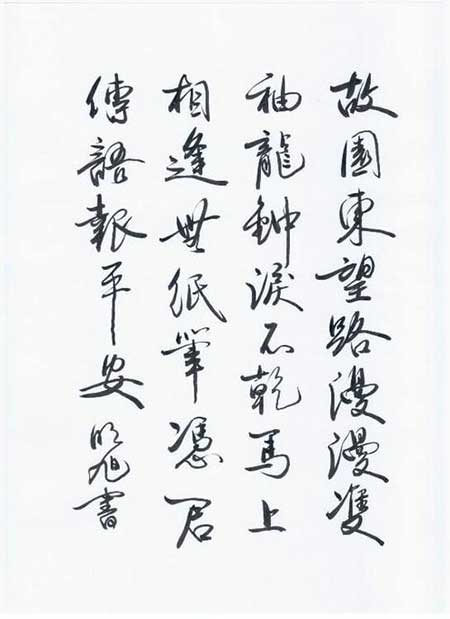 故園東望路漫漫雙
袖龍鍾淚不乾馬上
相逢無紙筆憑君
傳語報平安明旭書